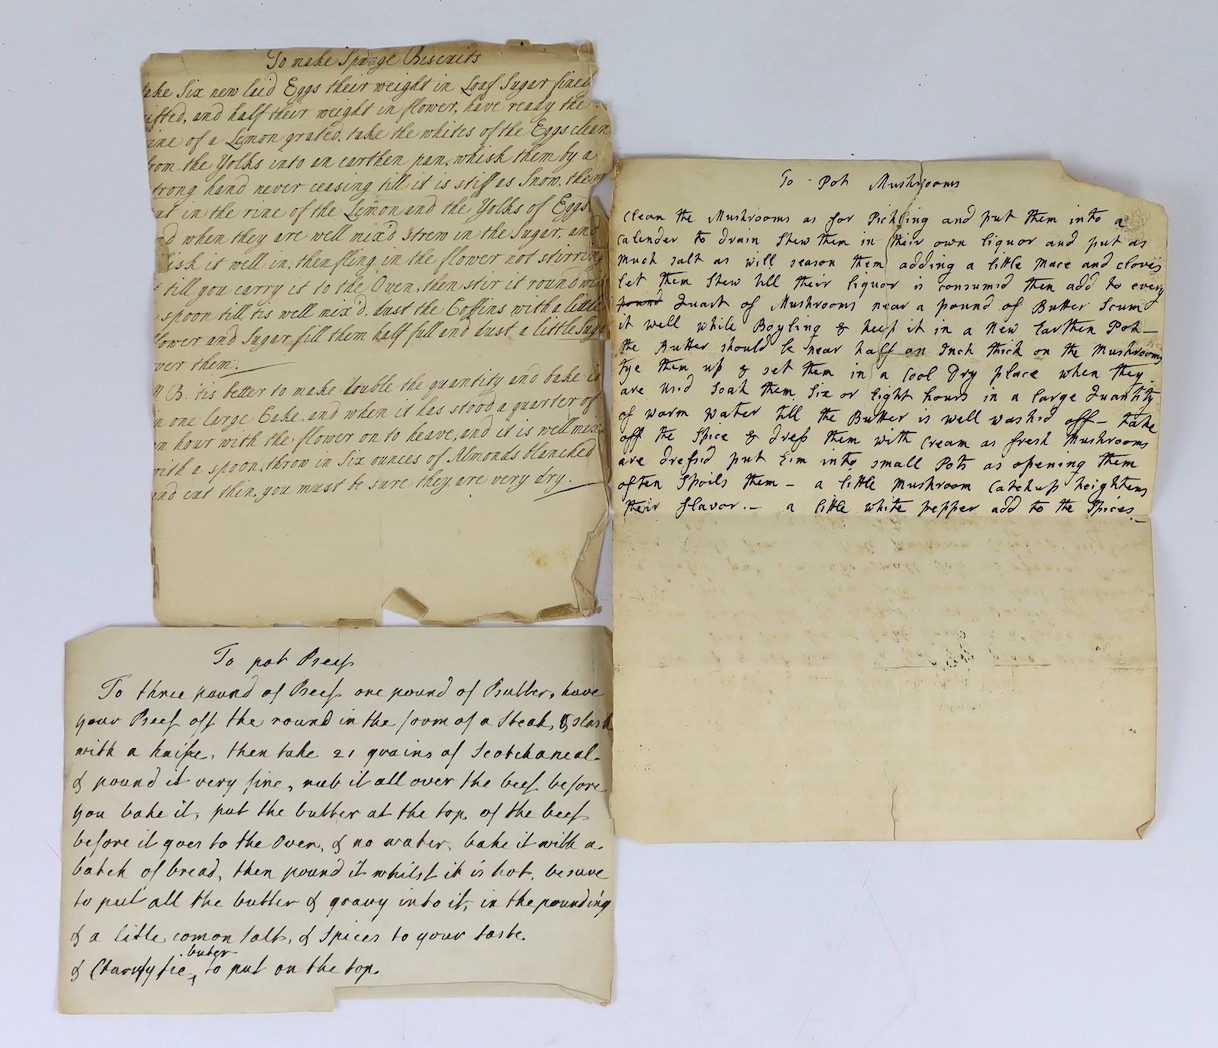 To make Spunge Biscuits
take Six new laid Eggs their weight in Loaf Sugar fined
sifted, and half their weight in flower, have ready the
rine of a Lemon grated, take the whites of the Eggs clean
from the Yolks into an earthen pan, whisk them by a
strong hand never ceasing till it is stiff as Snow, then
at in the rine of the Lemon and the Yolks of Eggs,
nd when they are well mix'd strew in the Sugar, and
isk it well in, then fling in the flower not stirring
till you carry it to the Oven, then stir it round
spoon till tis well mix'd, dust the Coffins with a little
flower and Sugar fill them half full and dust a little Suga
over them.
N B. tis better to make double the quantity and bake it
in one large Cake, and when it has stood a quarter of
an hour with the flower on to heave, and it is well mix
with a spoon, throw in Six ounces of Almonds blanched
and cut thin, you must be sure they are very dry.
To Pot Mushrooms
Clean the Mushrooms as for Pickling and put them into a
Calender to drain Stew them in their own liquor and put as
much salt as will season them adding a little mace and cloves
let them Stew till their liquor is consumid then add to every
pound Quart of Mushrooms near a pound of Butter Scum
it well while Boyling & keep it in a New Earthen Pot —
the Butter should be near half an Inch thick on the Mushrooms
tye them up & set them in a Cool Dry place when they
are usid Soak them Six or Eight hours in a large Quantity
of warm water till the Butter is well washid off — take
off the Spice & dress them with Cream as fresh Mushrooms
are dressid put Eim into small Pots as opening them
often Spoils them — a little Mushroom Catchup heightens
their flavor. — a little white pepper add to the Spices —
To pot Beef
To three pound of Beef one pound of Butter, have
your Beef off the round in the form of a Steak, & slash
with a knife, then take 21 grains of Scotchaneal
& pound it very fine, rub it all over the beef before
you bake it, put the butter at the top of the beef
before it goes to the Oven, & no water, bake it with a
batch of bread, then pound it whilst it is hot, besure
to put all the butter & gravy into it, in the pounding
& a litle comon salt, & spices to your taste.
buter
& Clarifyfie to put on the top.